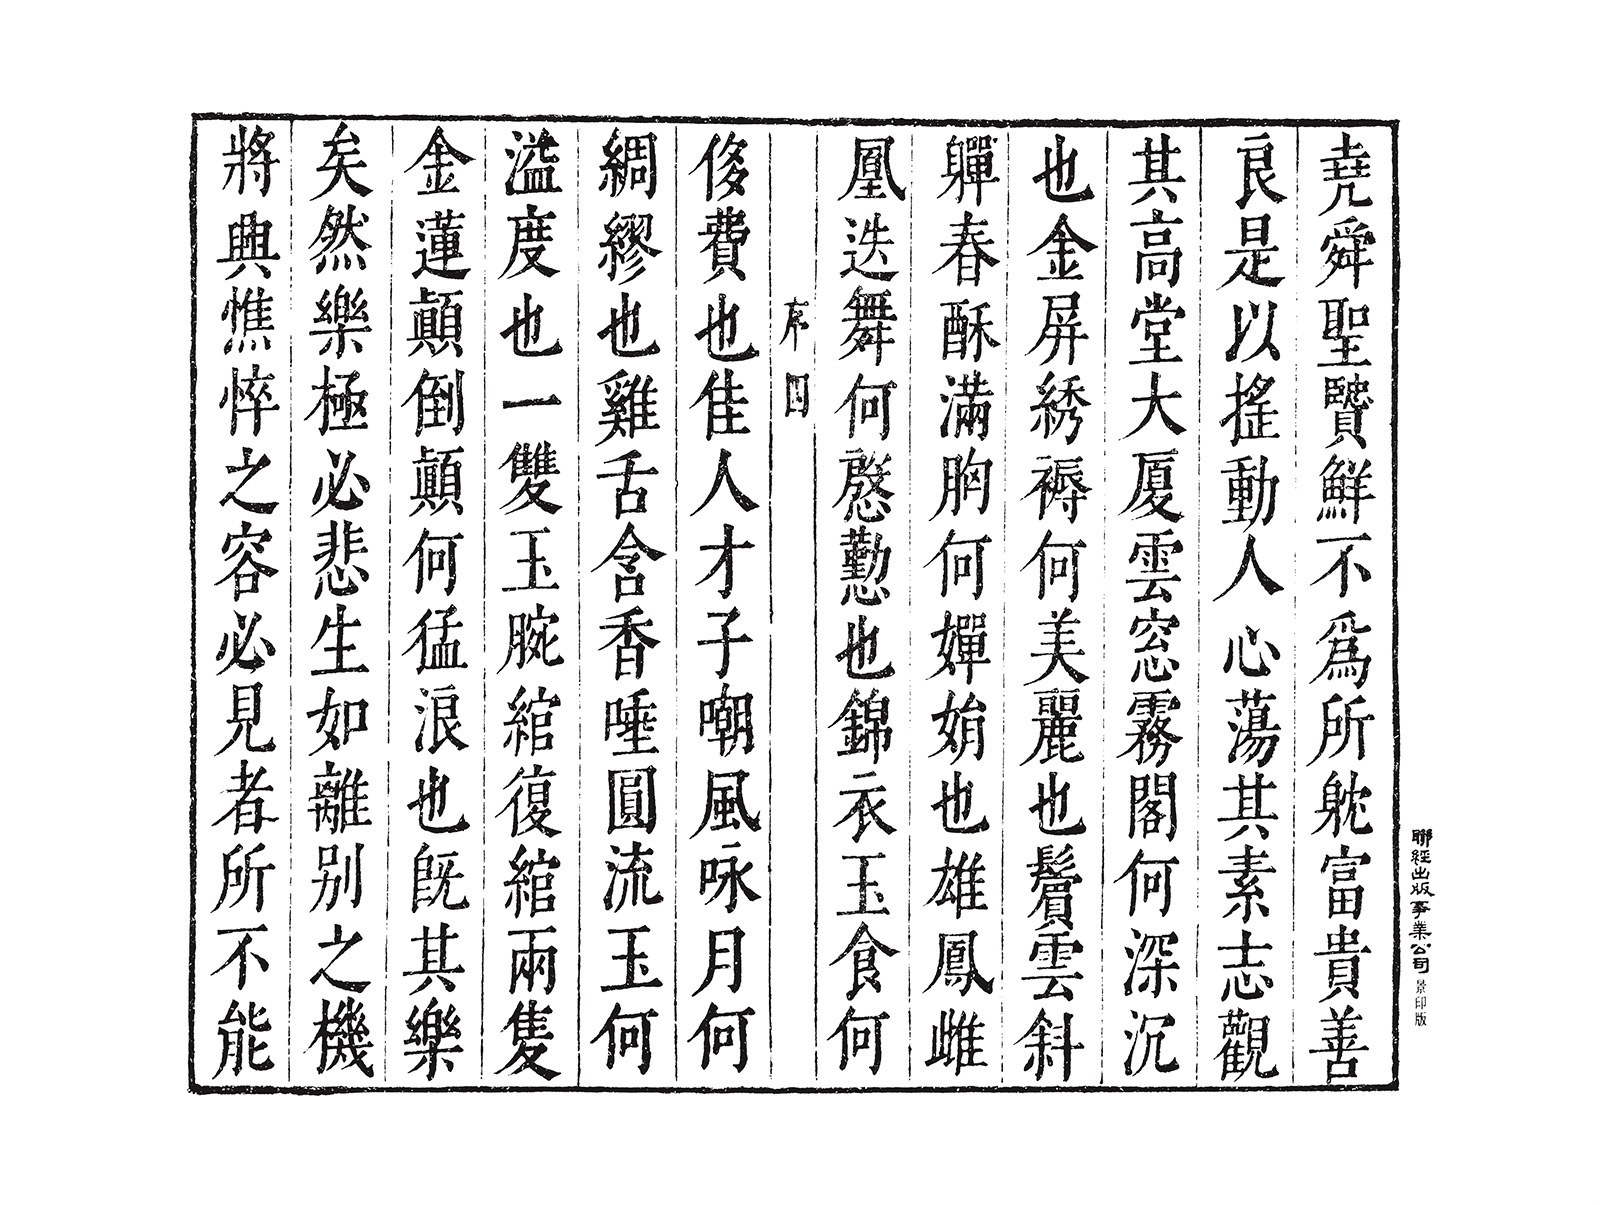 堯舜聖賢鮮不爲所躭富貴善
良是以搖動人心蕩其素志觀
其高堂大厦雲窓霧閣何深沉
也金屏綉褥何美麗也鬢雲斜
軃春酥滿胸何嬋娟也雄鳳雌
凰迭舞何慇懃也錦衣玉食何
序 四
侈費也佳人才子嘲風咏月何
綢繆也雞舌含香唾圓流玉何
溢度也一雙玉腕綰復綰兩隻
金蓮顛倒顛何猛浪也旣其樂
矣然樂極必悲生如離别之機
將興憔悴之容必見者所不能
聯經出版事業公司景印版